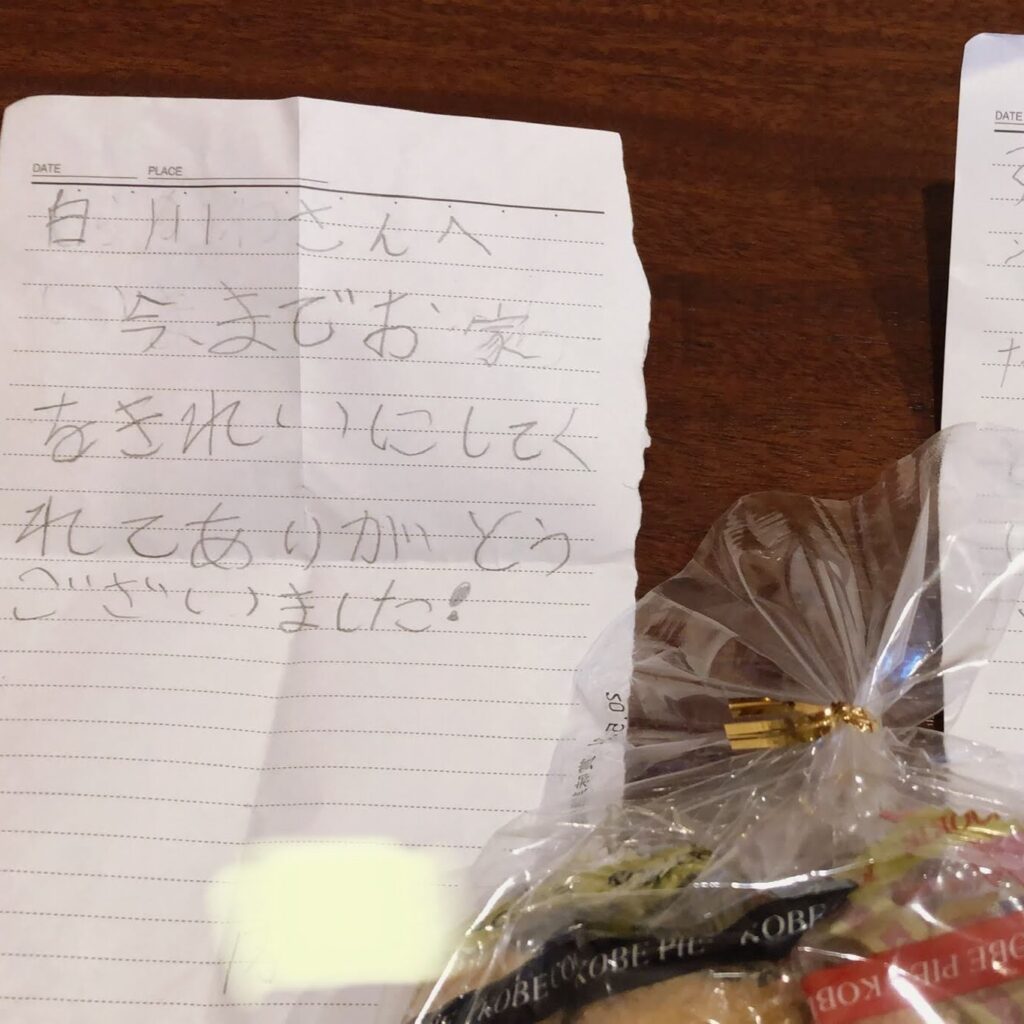 DATE PLACE
白川さんへ
今までお家
をきれいにしてく
れてありがとう
ございました!
DATE
KOBE
KOBE PIE
KOBE
KOBE PIE